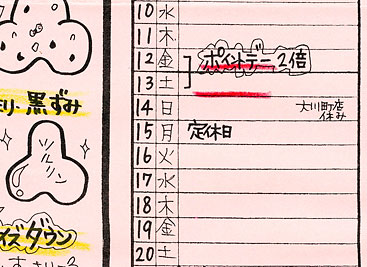 黒ずみ
イズダウン
10 水
11 木
12 金 ポイントデー2倍
13 土
14 日 大川町店
休み
15 月 定休日
16 火
17 水
18 木
19 金
20 土